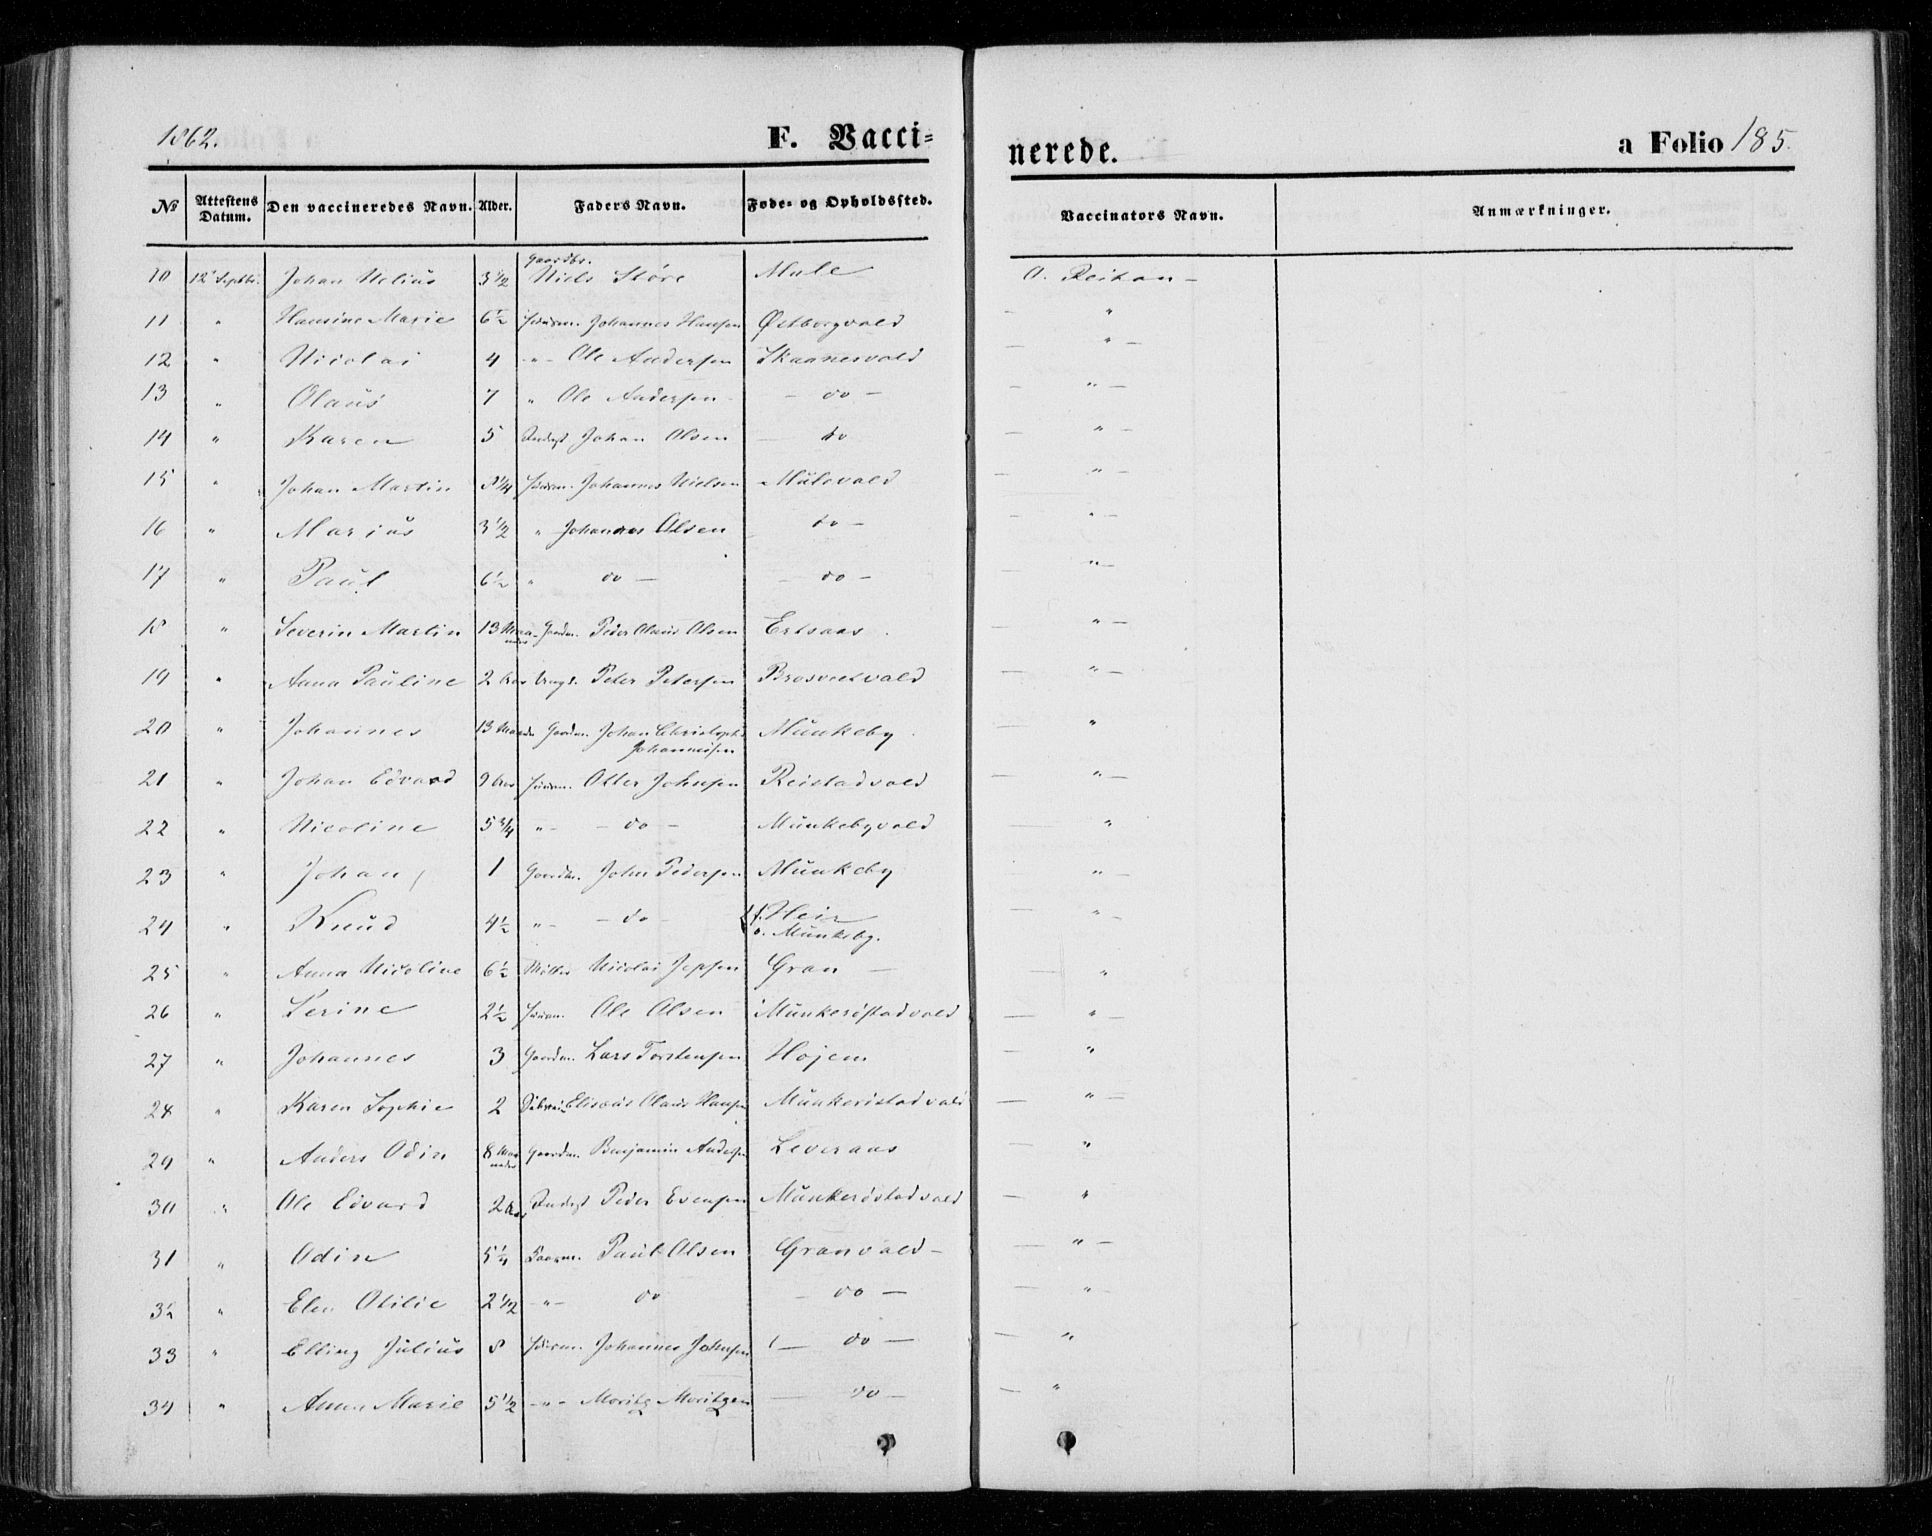 1862.
F. Vacci=
nerede.
a Folio 185.
№ Attestens Datum. Den vaccineredes Navn. Alder. Faders Navn. Føde- og Opholdssted. Vaccinators Navn. Anmærkninger.
10 12 Septbr. Johan Nelius 3 1/2 Gaardbr. Niels Støre Mule O. Reitan –
11 " Hansine Marie 6 1/2 Huusm. Johannes Hansen Østborgvald — "
12 " Nicolai 4 -"- Ole Andersen Skaanesvald — " —
13 " Olaus 7 " Ole Andersen – do – — " —
14 " Karen 5 Inderst Johan Olsen — do — " —
15 " Johan Martin 8 1/4 Huusm. Johannes Nielsen Mulevald — " —
16 " Marius 3 1/2 " Johannes Olsen do – — " —
17 " Paul 6 1/2 " do — – do – — " —
18 " Severin Martin 13 Maaneder Gaardm. Peder Olaus Olsen Ertsaas — " —
19 " Anna Pauline 2 Aar Peter Petersen Brosveetvald — " —
20 " Johannes 13 Gaardm. Johan Christoph Johannessen Munkeby — "
21 " Johan Edvard 9 Aar Huusm. Otter Johnsen Reistadvald — " —
22 " Nicoline 5 3/4 "- – do – Munkebyvald — "
23 " Johan 1 Gaardm. John Pedersen Munkeby — " —
24 " Knud 4 1/2 "- – do – f. Heir o. Munkeby. — " —
25 " Anna Nicoline 6 1/2 Møller Nicolai Jepsen Gran — — "
26 " Serine 2 1/2 Huusm. Ole Olsen Munkerøstadvald — " —
27 " Johannes 3 Gaardm. Lars Torstensen Højem — "
28 " Karen Sophie 2 Elisæus Olaus Hansen Munkerøstadvald — " —
29 " Anders Odin 8 Maaneder Gaardm. Benjamin Andersen Leveraas — "
30 " Ole Edvard 2 Aar Inderst Peder Evensen Munkerøstadvald — "
31 " Odin 5 1/4 Huusm. Paul Olsen Granvald – — " —
32 " Elen Otilie 2 1/2 -"- do – do — — " —
33 " Elling Julius 8 Huusm. Johannes Johnsen — do — — "
34 " Anna Marie 5 1/2 -"- Moritz Moritzen — do — — "